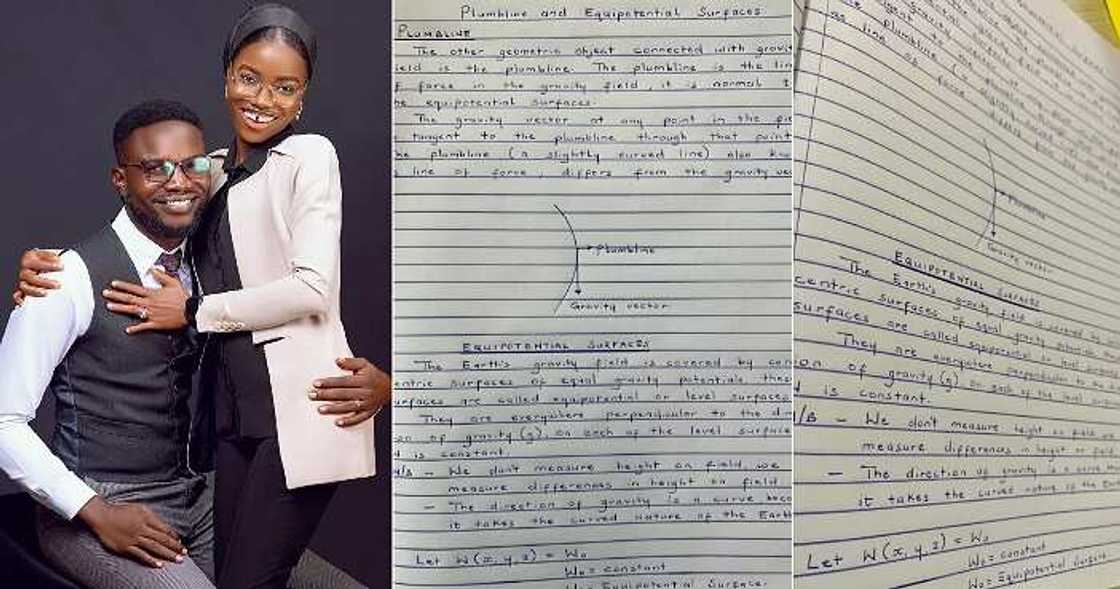 Plumbline and Equipotential Surfaces
PLUMBLINE
The other geometric object connected with gravit
ield is the plumbline. The plumbline is the lin
f force in the gravity field, it is normal t
he equipotential surfaces.
The gravity vector at any point in the fie
tangent to the plumbline through that point
he plumbline (a slightly curved line) also kno
s line of force, differs from the gravity vec
Plumbline
Gravity vector
EQUIPOTENTIAL SURFACES
The Earth's gravity field is covered by con
entric surfaces of equal gravity potentials these
urfaces are called equipotential or level surfaces.
They are everywhere perpendicular to the di
on of gravity (g), on each of the level surface
d is constant.
N/B - We don't measure height on field, we
measure differences in height on field
- The direction of gravity is a curve beca
it takes the curved nature of the Earth
Let W(x, y, z) = W₀
W₀ = constant
W₀ = Equipotential Surface.
plumbline
as line of force
Plumbline
Gravity vector
EQUIPOTENTIAL SURFACES
The Earth's gravity field is covered by
centric surfaces of equal gravity potentials
surfaces are called equipotential or level surfaces
They are everywhere perpendicular to
on of gravity (g) on each of the level surfa
d is constant.
/B - We don't measure height on field
measure differences in height on field
- The direction of gravity is a curve
it takes the curved nature of the Ea
Let W(x, y, z) = W₀
W₀ = constant
W₀ = Equipotential Surface